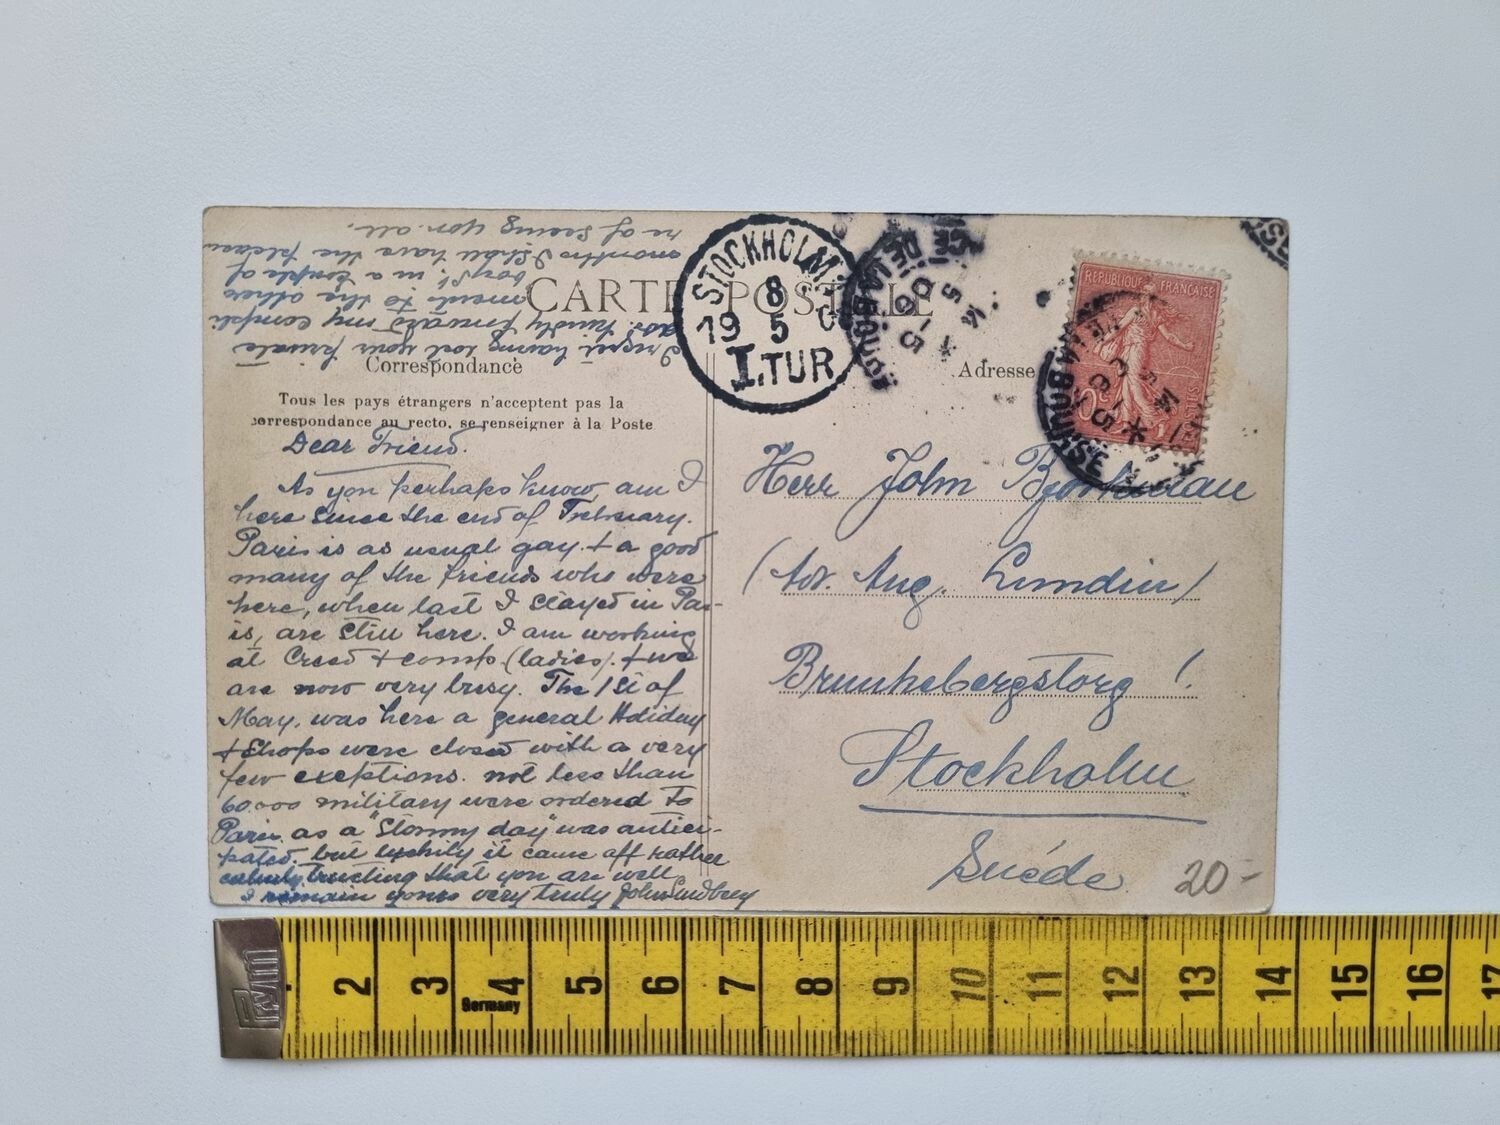 CARTE POSTALE
Correspondance
Adresse
Tous les pays étrangers n'acceptent pas la
correspondance au recto, se renseigner à la Poste
Dear Friend.
As you perhaps know, am I
here since the end of February.
Paris is as usual gay. + a good
many of the friends who were
here, when last I stayed in Par-
is, are still here. I am working
at Creed + comp. (ladies). + we
are now very busy. The 1st of
May. was here a general Holiday
+ Shops were closed with a very
few exceptions. not less than
60.000 military were ordered to
Paris as a "Stormy day" was antici-
pated. but luckily it came off rather
calmly, trusting that you are well
I remain yours very truly John Lundberg
I regret having lost your private
adr. kindly forward my compli
ments to the other
boys. in a couple of
months I shall have the pleasu
re of seeing you all.
STOCKHOLM.
8
19 5 0
I.TUR
DE LA BOURSE
5-5
06
REPUBLIQUE FRANÇAISE
10c
POSTES
DE LA BOURSE
5-5
06
Herr John
(Adr. Aug. Lundin)
Brunkebergstorg 1.
Stockholm
Suède
20-
Prym
2 3 4 5 6 7 8 9 10 11 12 13 14 15 16 17
Germany